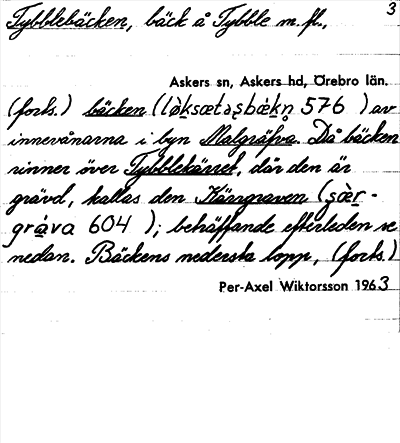 Tybblebäcken, bäck å Tybble m.fl.,
3
Askers sn, Askers hd, Örebro län.
(forts.) bäcken ( 576 ) av
innevånarna i byn Malgräfva. Då bäcken
rinner över Tybblekärret, där den är
grävd, kallas den Kärrgraven (
604 ); beträffande efterleden se
nedan. Bäckens nedersta lopp, (forts.)
Per-Axel Wiktorsson 1963